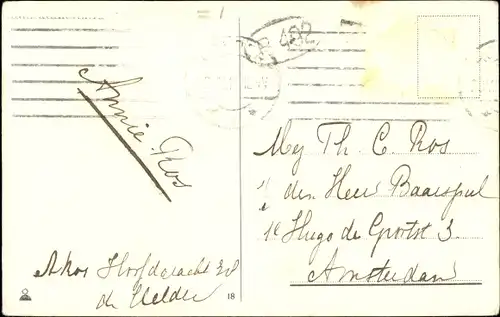 402
Annie Ros
Mej Th. C. Ros
den Heer Baarspul
1e Hugo de Grootst 3
Amsterdam
A Ros Hoofdgracht
den Helder
18